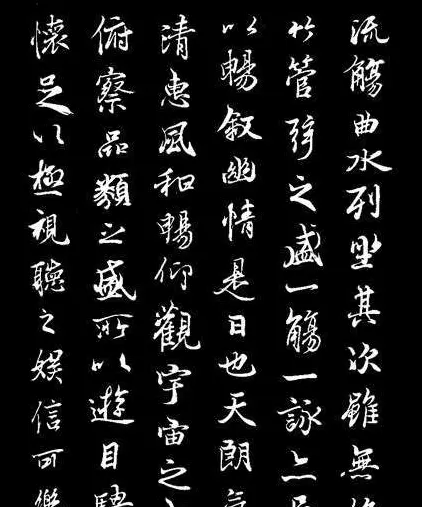 流觴曲水列坐其次雖無
竹管弦之盛一觴一詠亦足
以暢叙幽情是日也天朗氣
清惠風和暢仰觀宇宙之
俯察品類之盛所以遊目騁
懷足以極視聽之娛信可樂